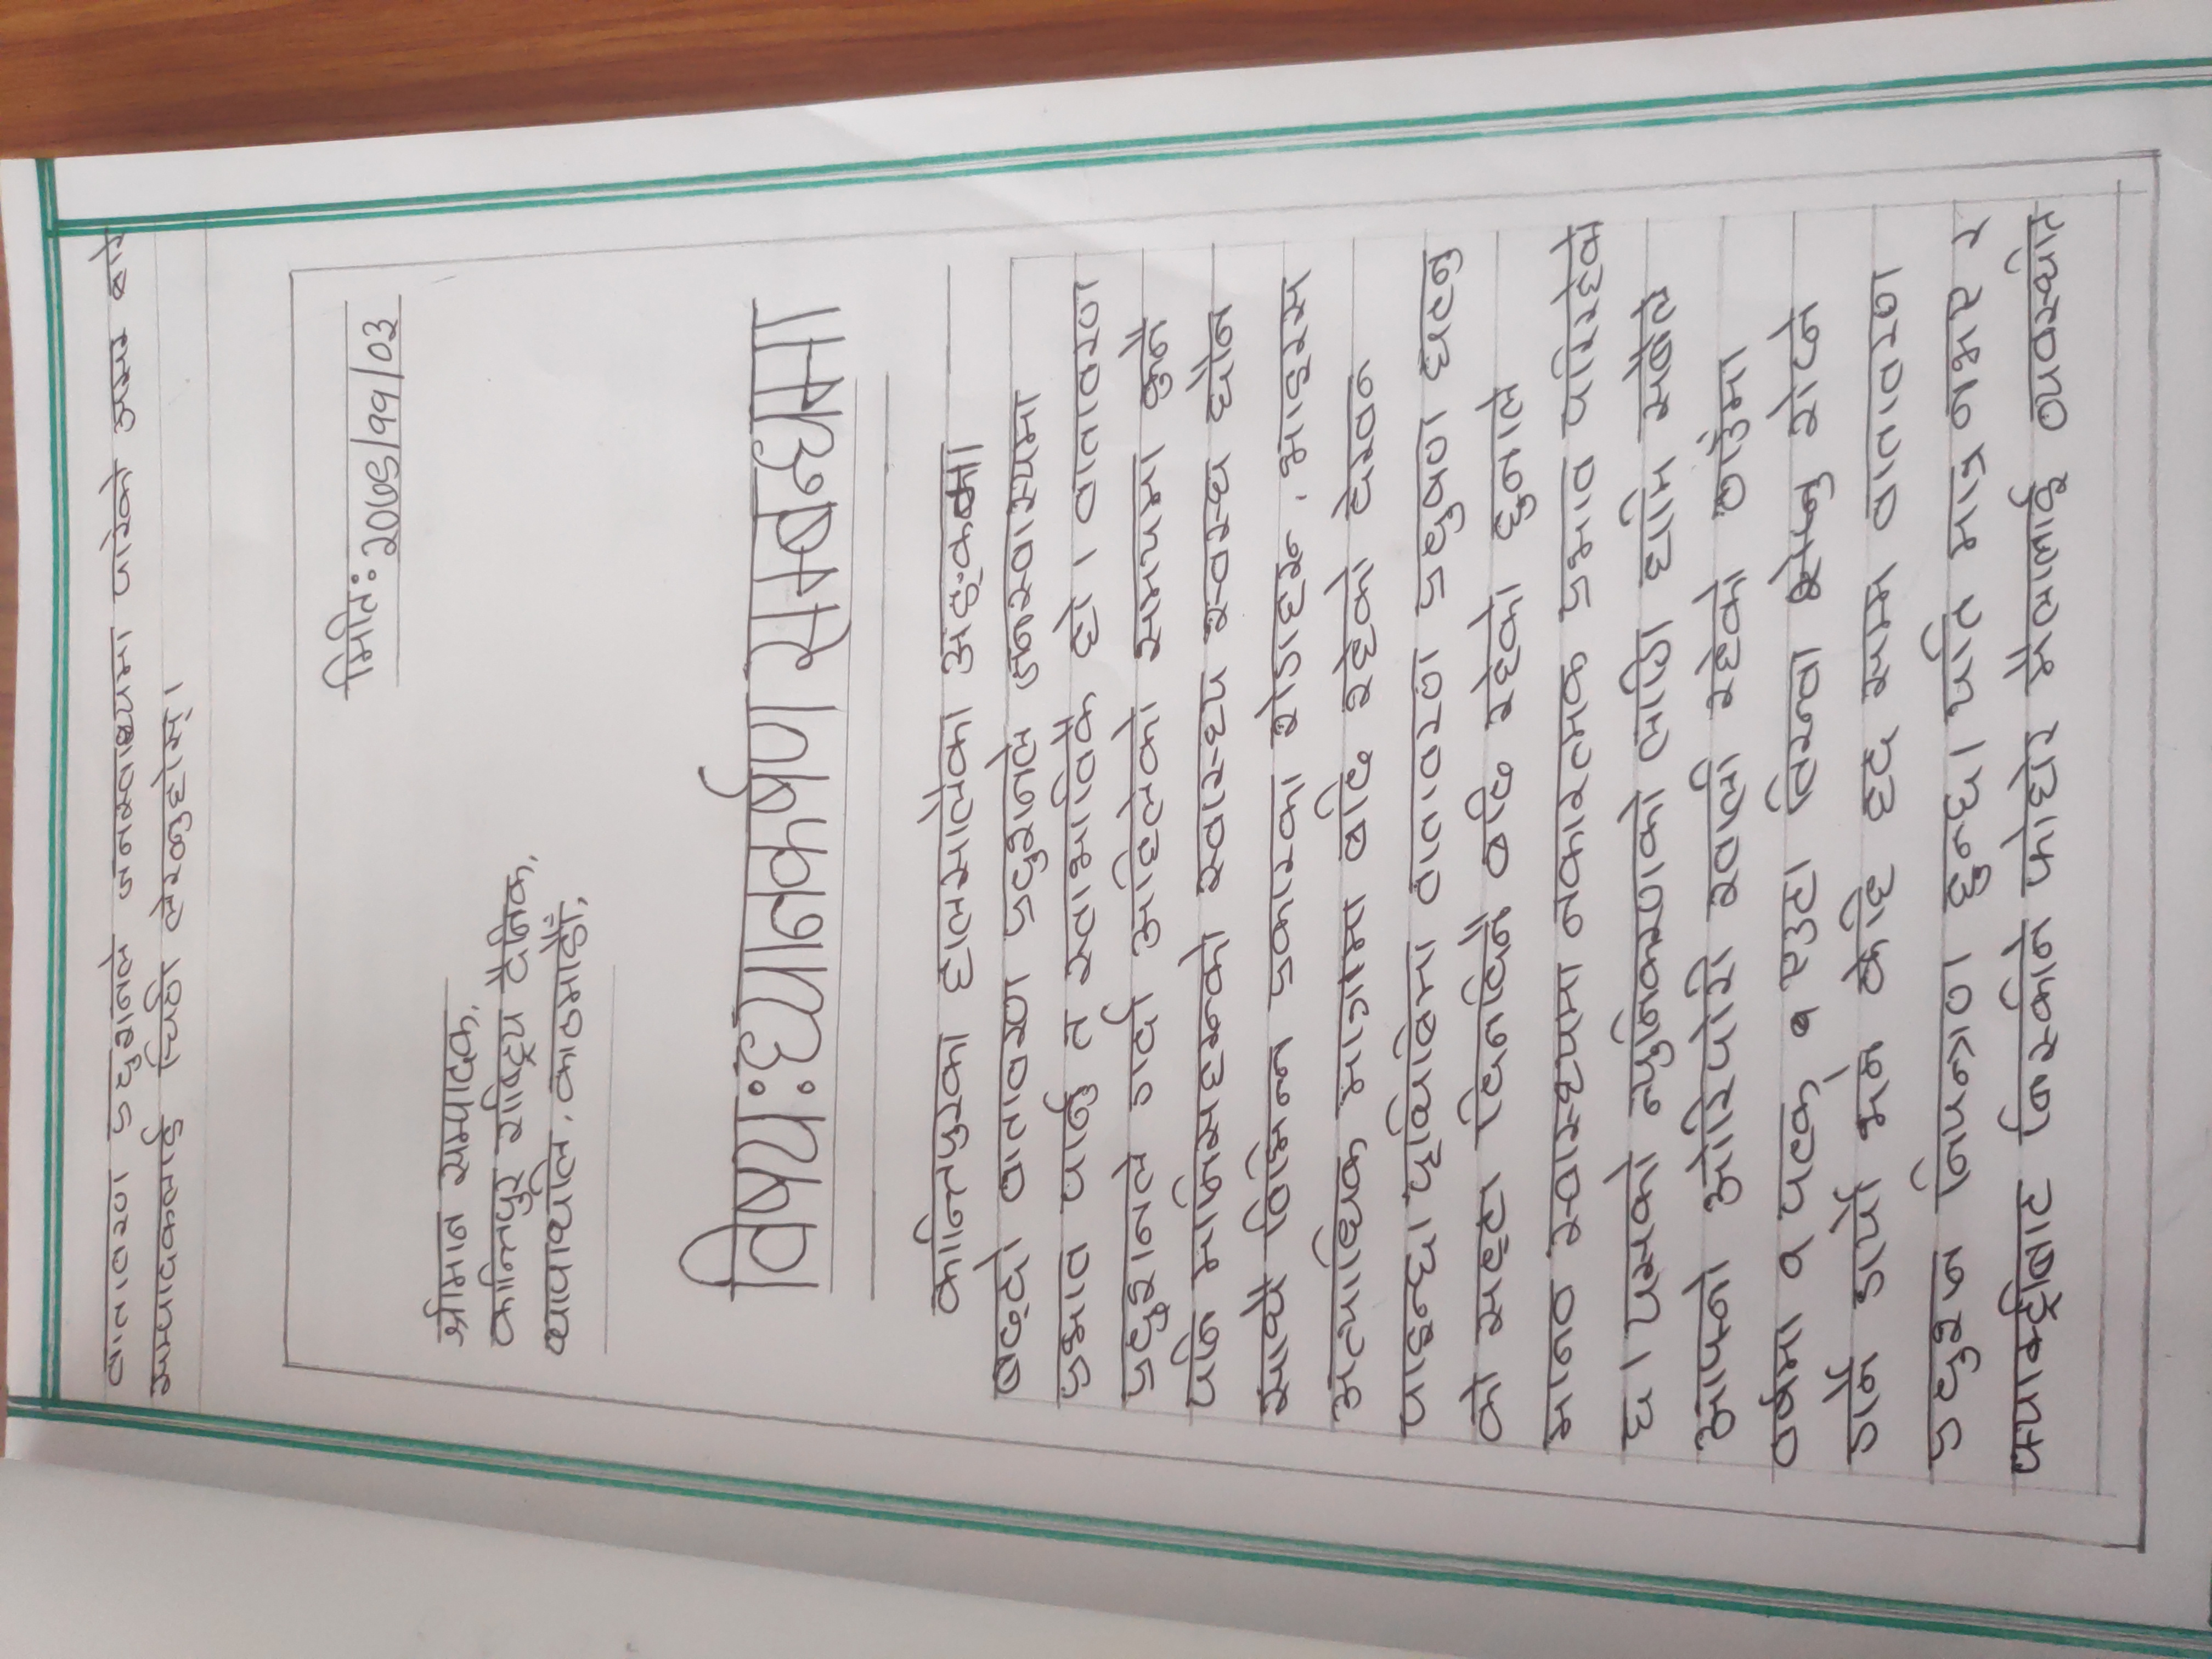 वातावरण प्रदुशनले जनस्वास्थ्यमा पारेको असर बारे
सम्पादकलाई चिठी लेख्नुहोस्।
मिति: २०७९/११/०३
श्रीमान सम्पादक,
कान्तिपुर राष्ट्रिय दैनिक,
थापाथलि, काठमाडौँ,
विषय: ध्यानकर्षण सम्बन्धमा
कान्तिपुरका हालसालैका अङ्कमा
बढ्दो वातावरण प्रदुशनले जनस्वास्थ्यमा
प्रभाव पार्नु त स्वाभाविकै हो। वातावरण
प्रदुशनले गर्दा अहिलेको समयमा कुनै
पनि मानिसहरूको स्वास्थ्य स्वस्थ छैन
साथै विभिन्न प्रकारका रोगहरू, भाइरस
अत्याधिक मात्रामा बढि रहेको देख्न
पाइन्छ। पृथिबिमा वातावरण प्रदुषण घट्नु
को सट्टा दिनदिनै बढि रहेको हुनाले
मानव स्वास्थ्यमा नकारत्मक प्रभाव पारिरहेको
छ। यसको न्युनिकरणको लागि हामि सबैले
आफ्नो ओरिपोरी खाली रहेको ठाउँमा
वर्षमा १ पटक् एउटा विरुवा रोप्ने
गर्ने गर्यौ भने केहि हद सम्म वातावरण
प्रदुशन नियन्त्रण हुन्छ। यति मात्र नभए र
फ्याक्ट्रीबाट निस्कीने फोहोर मैलालाई व्यवस्थीत